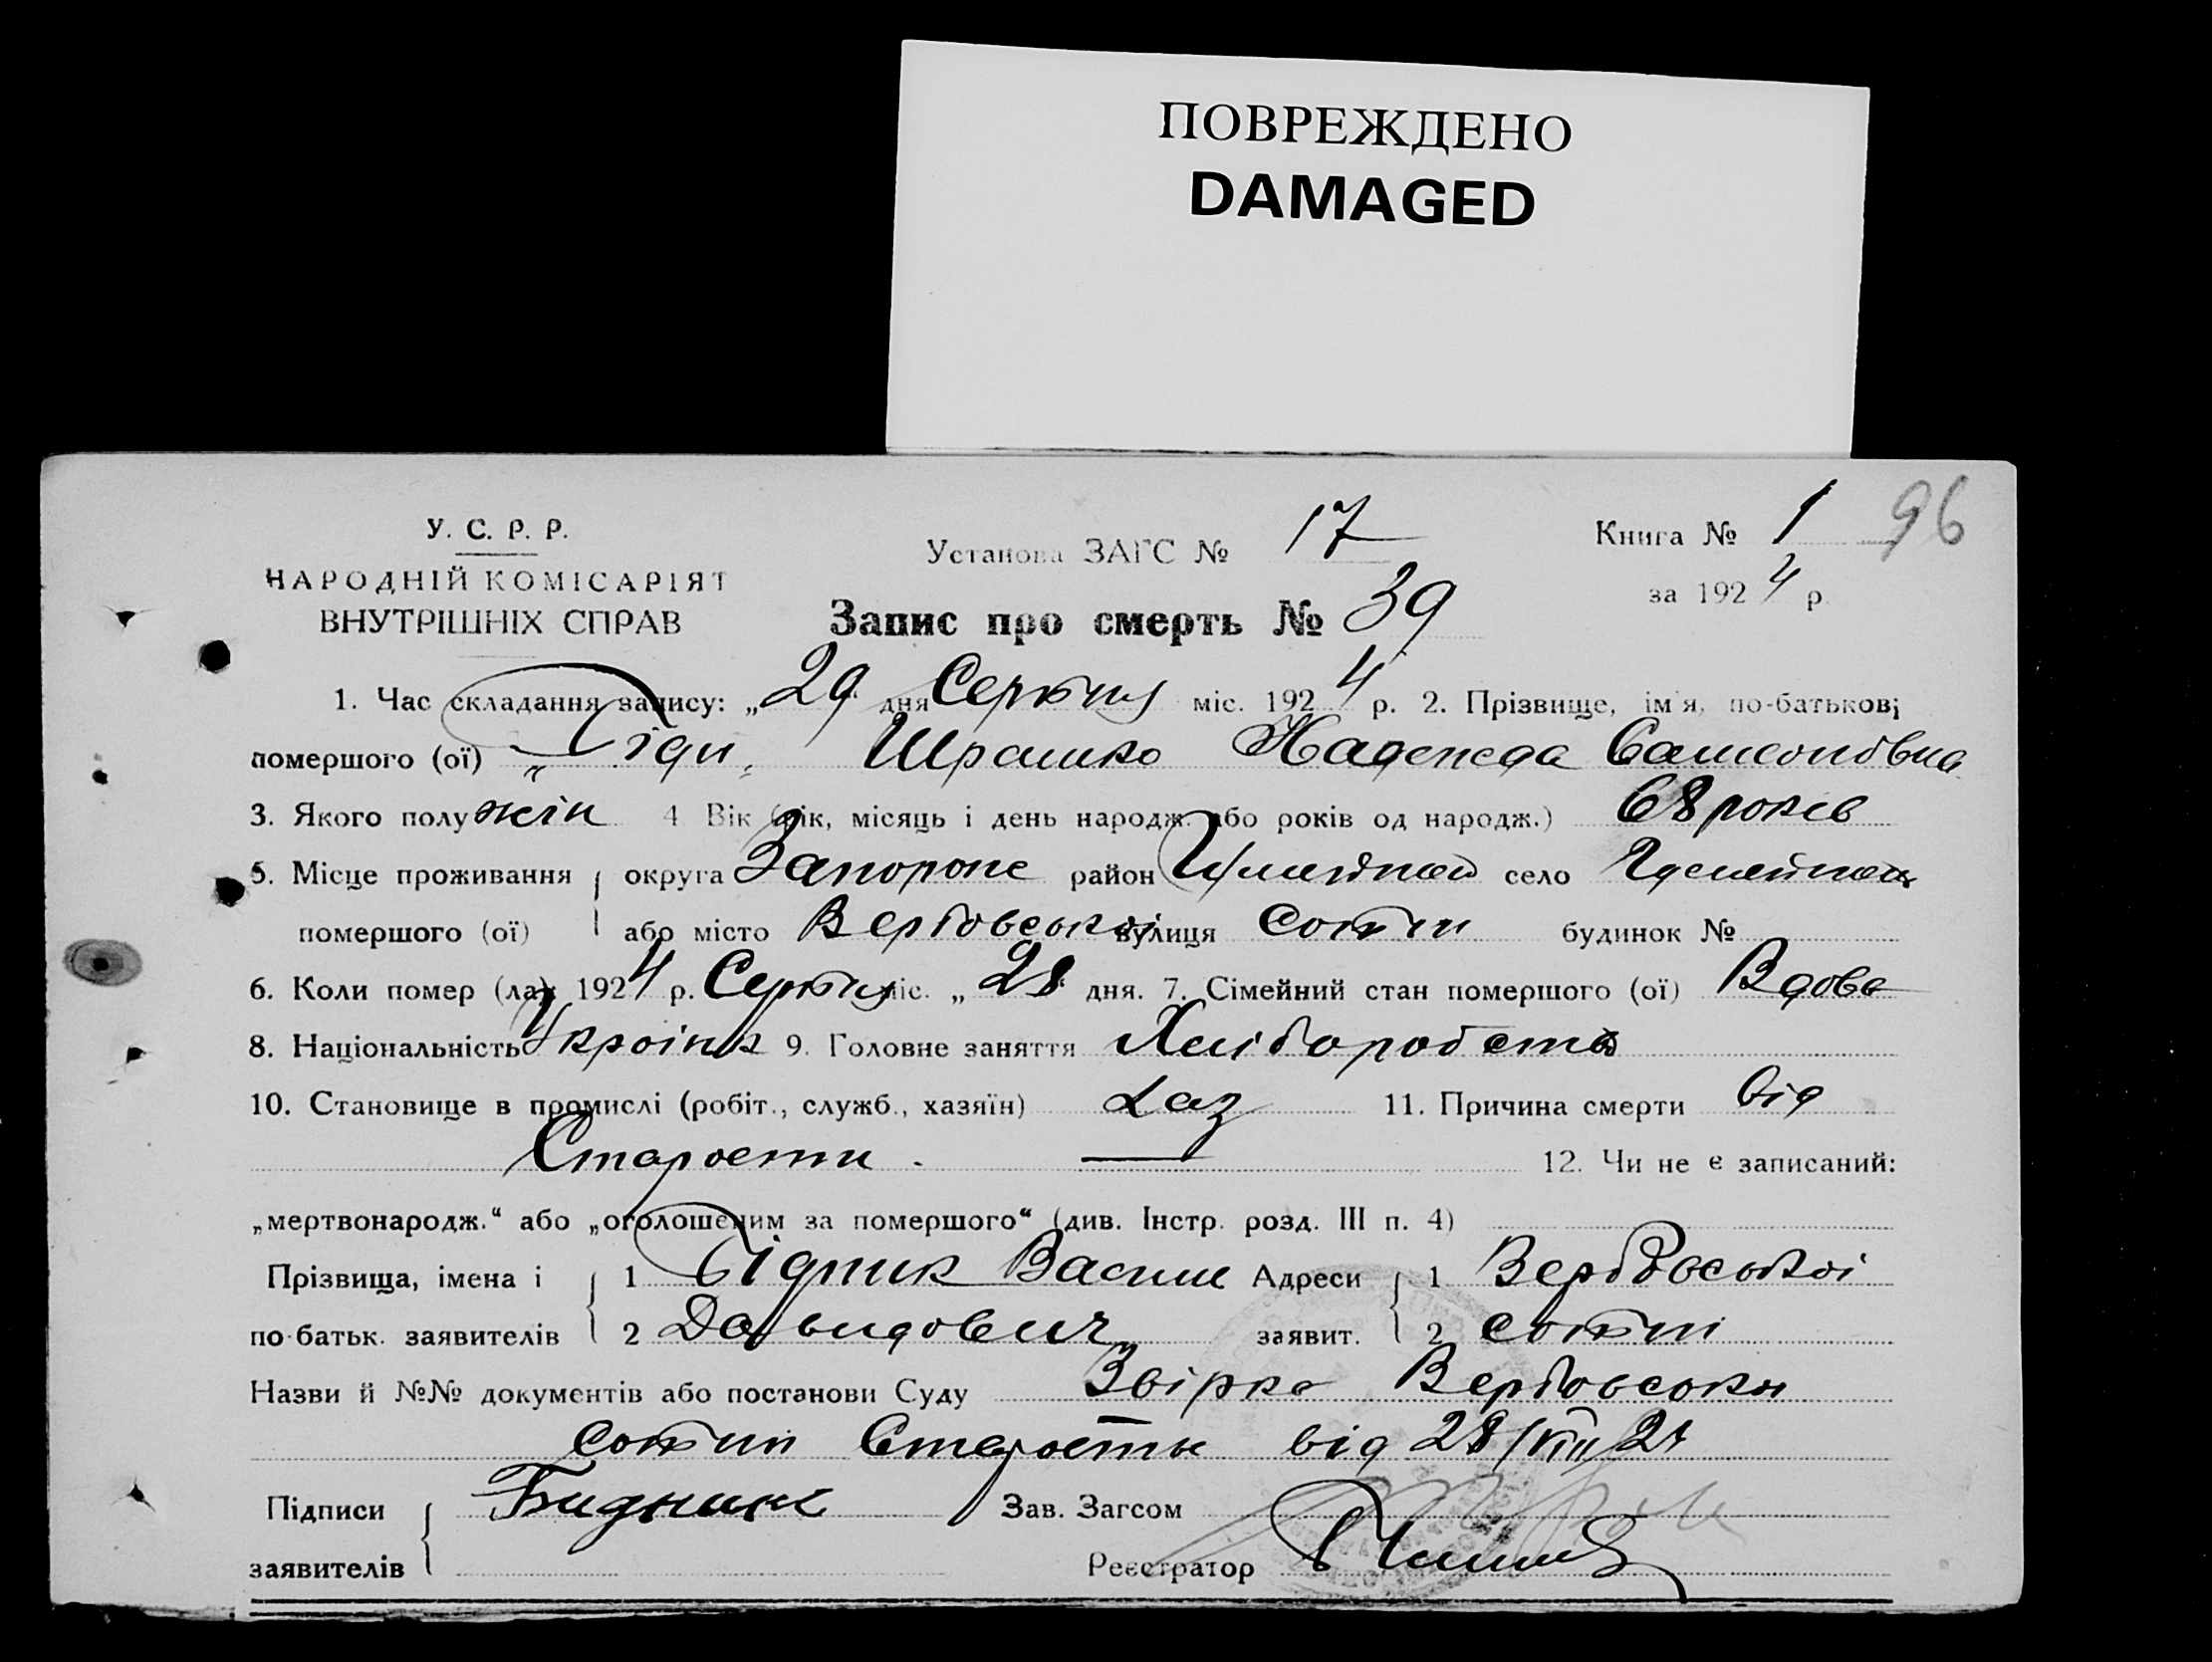 ПОВРЕЖДЕНО
DAMAGED
У. С. Р. Р.
НАРОДНІЙ КОМІСАРІЯТ
ВНУТРІШНІХ СПРАВ
Установа ЗАГС № 17
Книга № 1 96
за 1924 р.
Запис про смерть № 39
1. Час складання запису: „29 дня Серпня міс. 1924 р. 2. Прізвище, ім'я, по-батькові
помершого (ої) Надежда Самсоновна
3. Якого полу жін 4 Вік (рік, місяць і день народж. або років од народж.) 68 років
5. Місце проживання округа Запорож район село
помершого (ої) або місто Вербовської вулиця сотни будинок №
6. Коли помер (ла): 1924 р. Серпня міс. „28 дня. 7. Сімейний стан помершого (ої) Вдова
8. Національність Україн 9. Головне заняття
10. Становище в промислі (робіт., служб., хазяїн) 11. Причина смерти від
Старости. 12. Чи не є записаний:
„мертвонародж.“ або „оголошеним за помершого“ (див. Інстр. розд. III п. 4)
Прізвища, імена і 1 Бідник Васили Адреси 1 Вербовської
по-батьк. заявителів 2 Давидович заявит. 2 сотні
Назви й №№ документів або постанови Суду Вербовської
сотни Старосты від 28/VIII 24
Підписи Бидник Зав. Загсом
заявителів Реєстратор